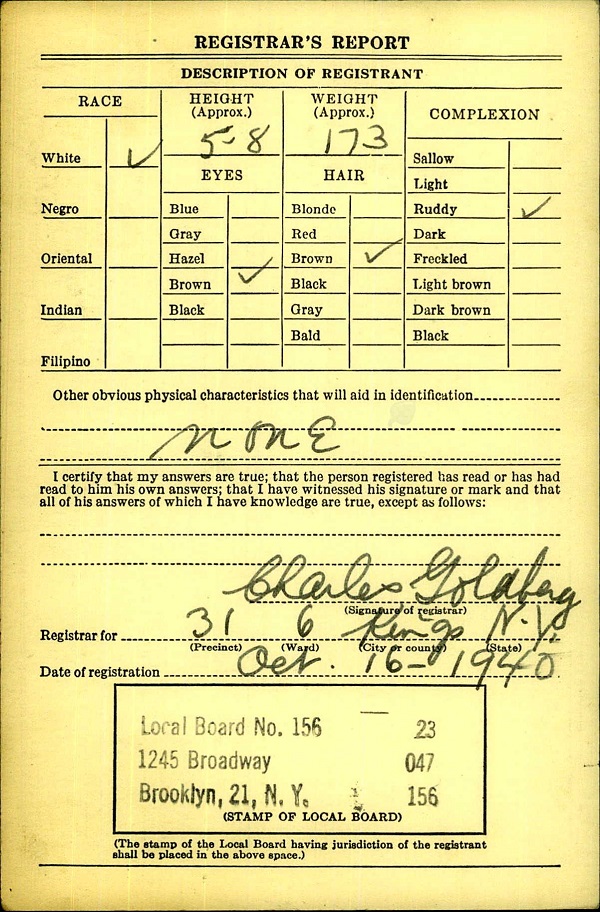 REGISTRAR'S REPORT
DESCRIPTION OF REGISTRANT
RACE
HEIGHT
(Approx.)
WEIGHT
(Approx.)
COMPLEXION
5-8
173
White ✓
Negro
Oriental
Indian
Filipino
EYES
Blue
Gray
Hazel
Brown ✓
Black
HAIR
Blonde
Red
Brown ✓
Black
Gray
Bald
Sallow
Light
Ruddy ✓
Dark
Freckled
Light brown
Dark brown
Black
Other obvious physical characteristics that will aid in identification
None
I certify that my answers are true; that the person registered has read or has had
read to him his own answers; that I have witnessed his signature or mark and that
all of his answers of which I have knowledge are true, except as follows:
Charles Goldberg
(Signature of registrar)
Registrar for 31 6 Kings N.Y.
(Precinct) (Ward) (City or county) (State)
Date of registration Oct. 16- 1940
Local Board No. 156 23
1245 Broadway 047
Brooklyn, 21, N. Y. 156
(STAMP OF LOCAL BOARD)
(The stamp of the Local Board having jurisdiction of the registrant
shall be placed in the above space.)